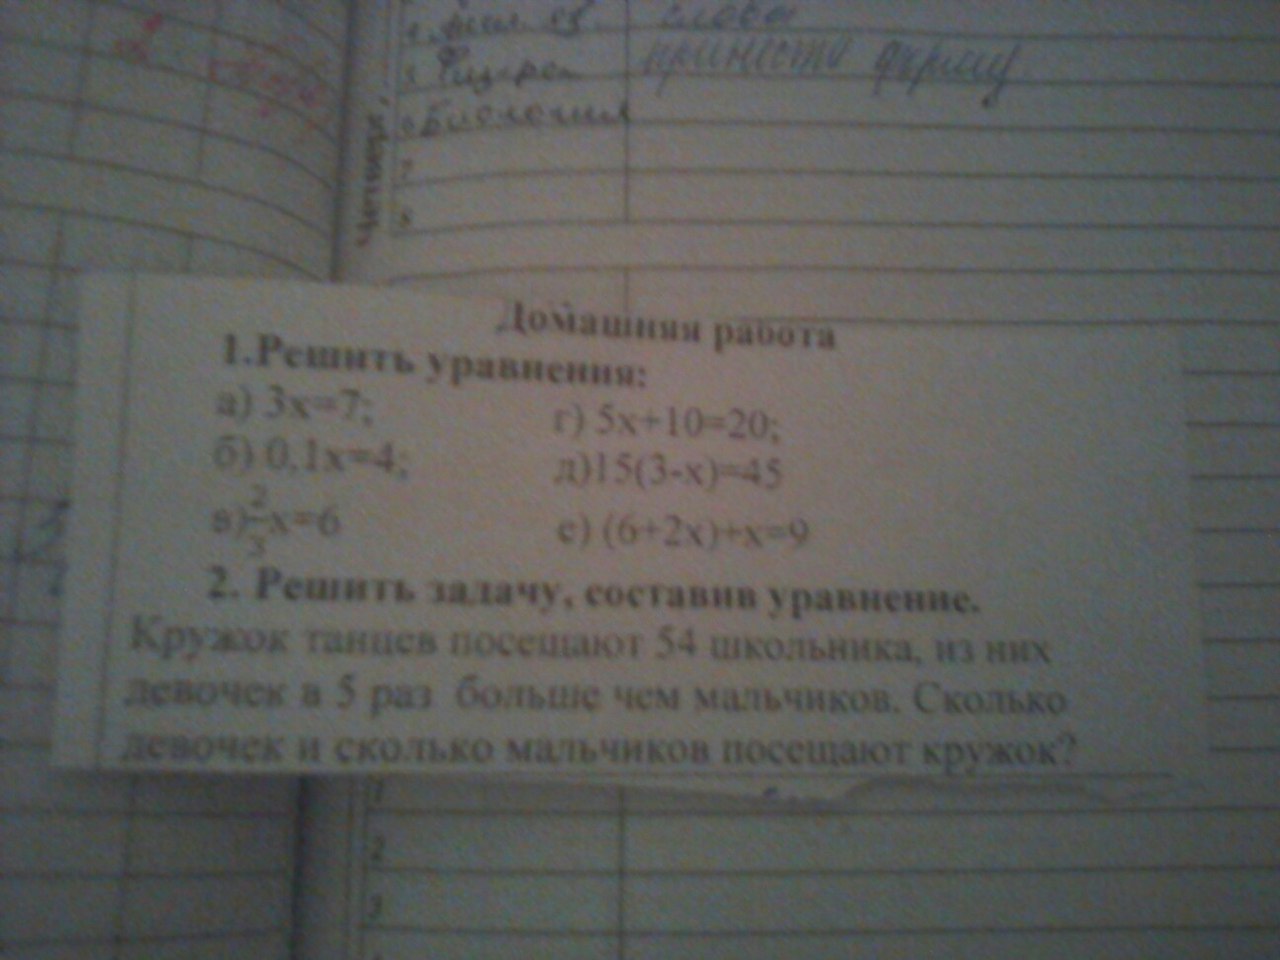 слова
принести форму
Биология
7
8
Четверг,
Домашняя работа
1.Решить уравнения:
а) 3х=7; г) 5х+10=20;
б) 0,1х=4; д)15(3-х)=45
в)2/3х=6 е) (6+2х)+х=9
2. Решить задачу, составив уравнение.
Кружок танцев посещают 54 школьника, из них
девочек в 5 раз больше чем мальчиков. Сколько
девочек и сколько мальчиков посещают кружок?
1
2
3